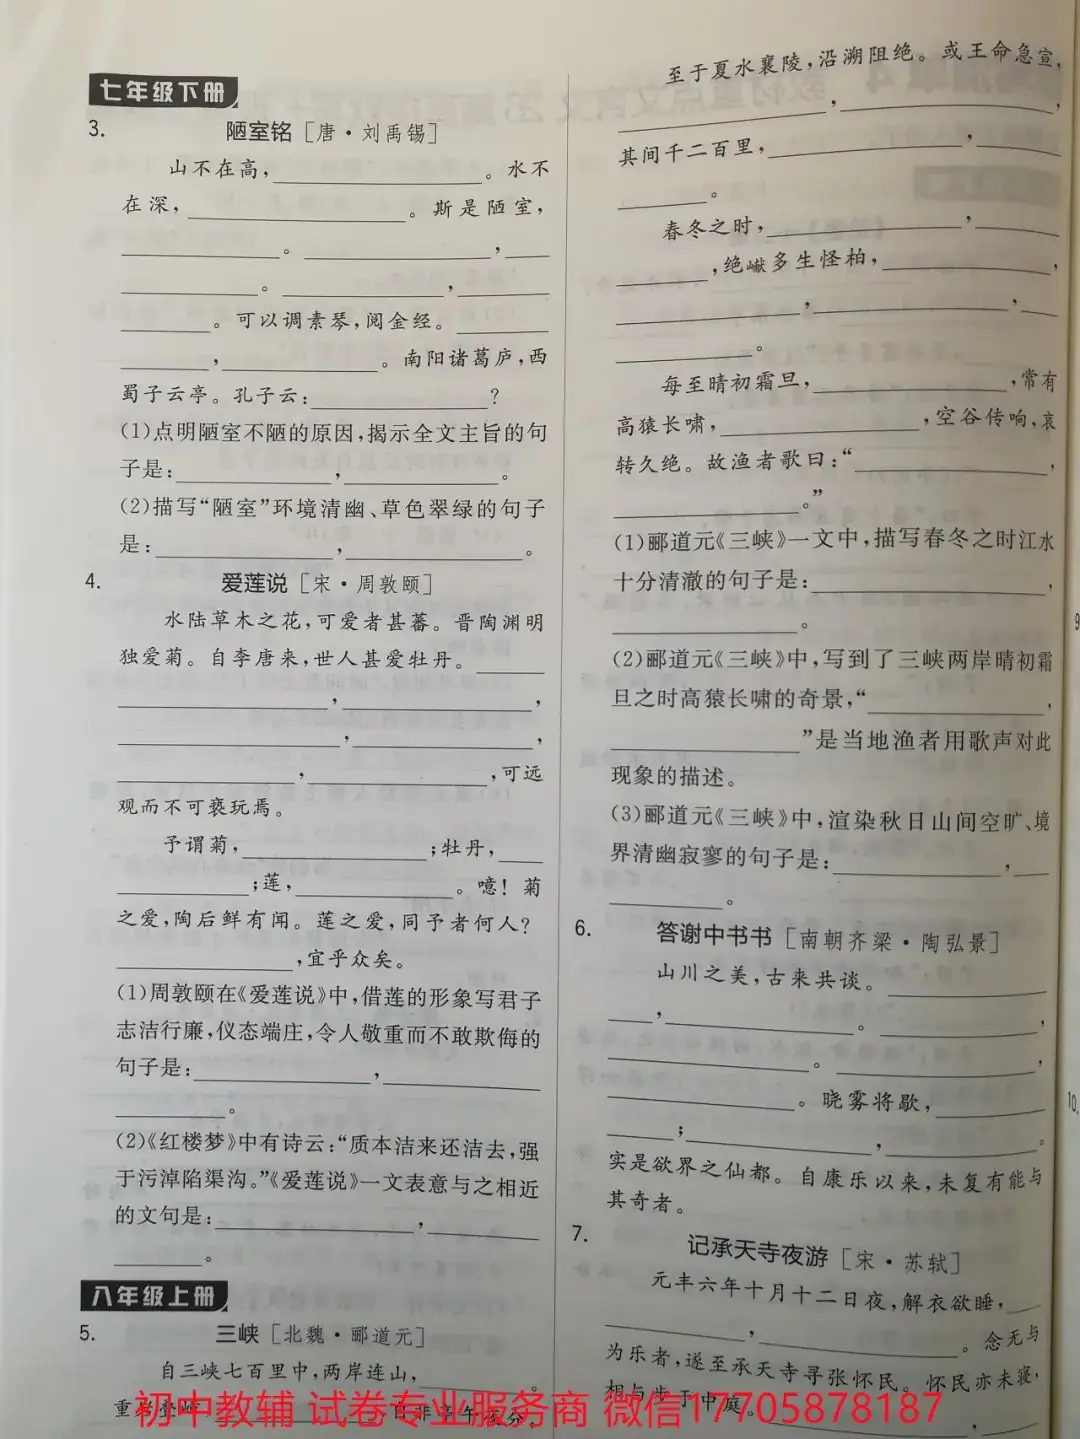 七年级下册
3. 陋室铭［唐·刘禹锡］
山不在高，。水不
在深，。斯是陋室，
。，
。，
。可以调素琴，阅金经。
，。南阳诸葛庐，西
蜀子云亭。孔子云：？
(1)点明陋室不陋的原因，揭示全文主旨的句
子是：，。
(2)描写“陋室”环境清幽、草色翠绿的句子
是：，。
4. 爱莲说［宋·周敦颐］
水陆草木之花，可爱者甚蕃。晋陶渊明
独爱菊。自李唐来，世人甚爱牡丹。
，，
，，
，，可远
观而不可亵玩焉。
予谓菊，；牡丹，
；莲，。噫！菊
之爱，陶后鲜有闻。莲之爱，同予者何人？
，宜乎众矣。
(1)周敦颐在《爱莲说》中，借莲的形象写君子
志洁行廉，仪态端庄，令人敬重而不敢欺侮的
句子是：，
。
(2)《红楼梦》中有诗云：“质本洁来还洁去，强
于污淖陷渠沟。”《爱莲说》一文表意与之相近
的文句是：，
。
八年级上册
5. 三峡［北魏·郦道元］
自三峡七百里中，两岸连山，。
至于夏水襄陵，沿溯阻绝。或王命急宣，
，，
其间千二百里，，
。
春冬之时，，
，绝巘多生怪柏，，
，，
。
每至晴初霜旦，，常有
高猿长啸，，空谷传响，哀
转久绝。故渔者歌曰：“，
。”
(1)郦道元《三峡》一文中，描写春冬之时江水
十分清澈的句子是：，
。
(2)郦道元《三峡》中，写到了三峡两岸晴初霜
旦之时高猿长啸的奇景，“，
”是当地渔者用歌声对此
现象的描述。
(3)郦道元《三峡》中，渲染秋日山间空旷、境
界清幽寂寥的句子是：，
。
6. 答谢中书书［南朝齐梁·陶弘景］
山川之美，古来共谈。
，。，
。，
。晓雾将歇，
；，。
实是欲界之仙都。自康乐以来，未复有能与
其奇者。
7. 记承天寺夜游［宋·苏轼］
元丰六年十月十二日夜，解衣欲睡，
，。念无与
为乐者，遂至承天寺寻张怀民。怀民亦未寝，
相与步于中庭。，
9
10.
初中教辅 试卷专业服务商 微信17705878187